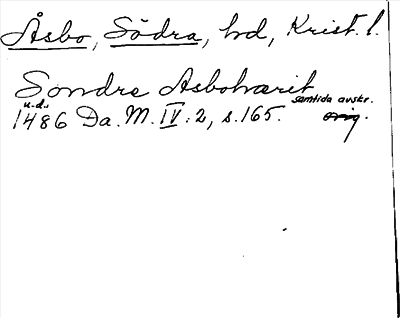 Åsbo, Södra, hd, Krist. l.
Søndre Asbohærit
u.d. samtida avskr.
1486 Da. M. IV: 2, s. 165. orig.